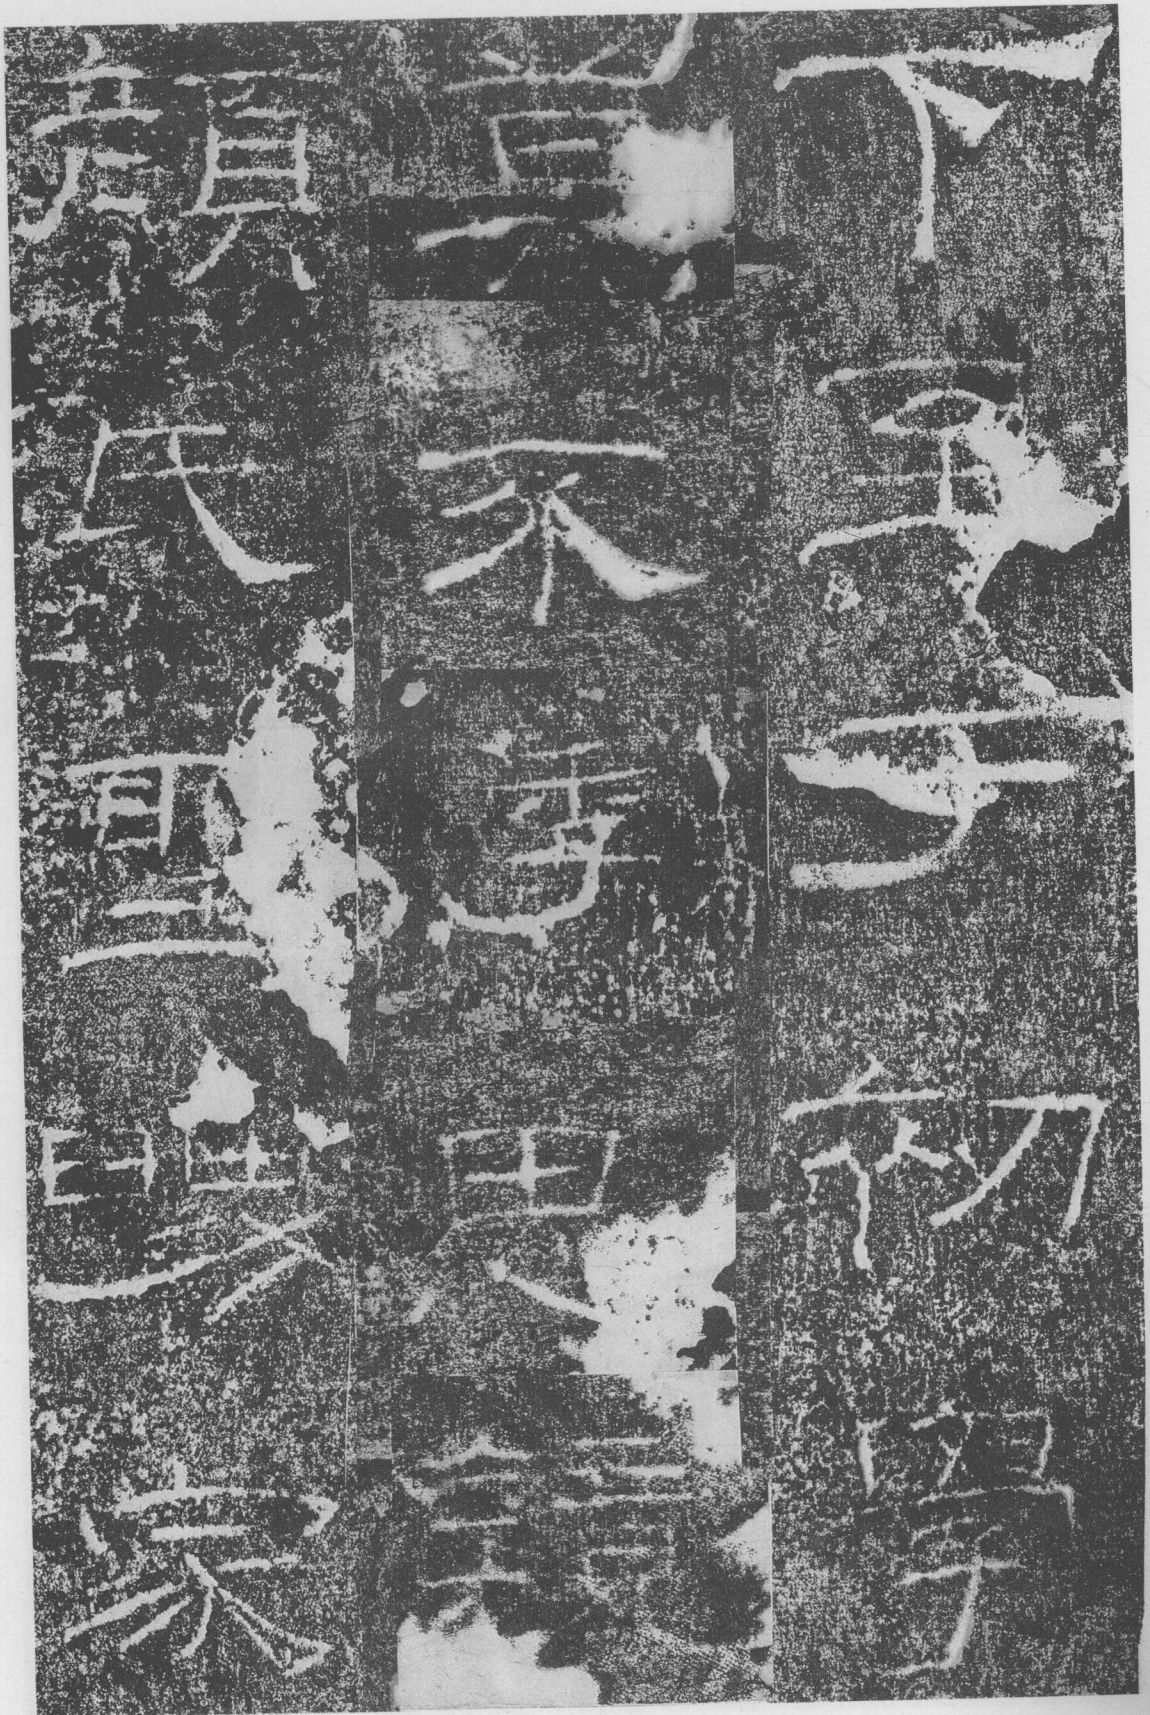 下至于初學
莫不思鏡
顏氏聖舅家